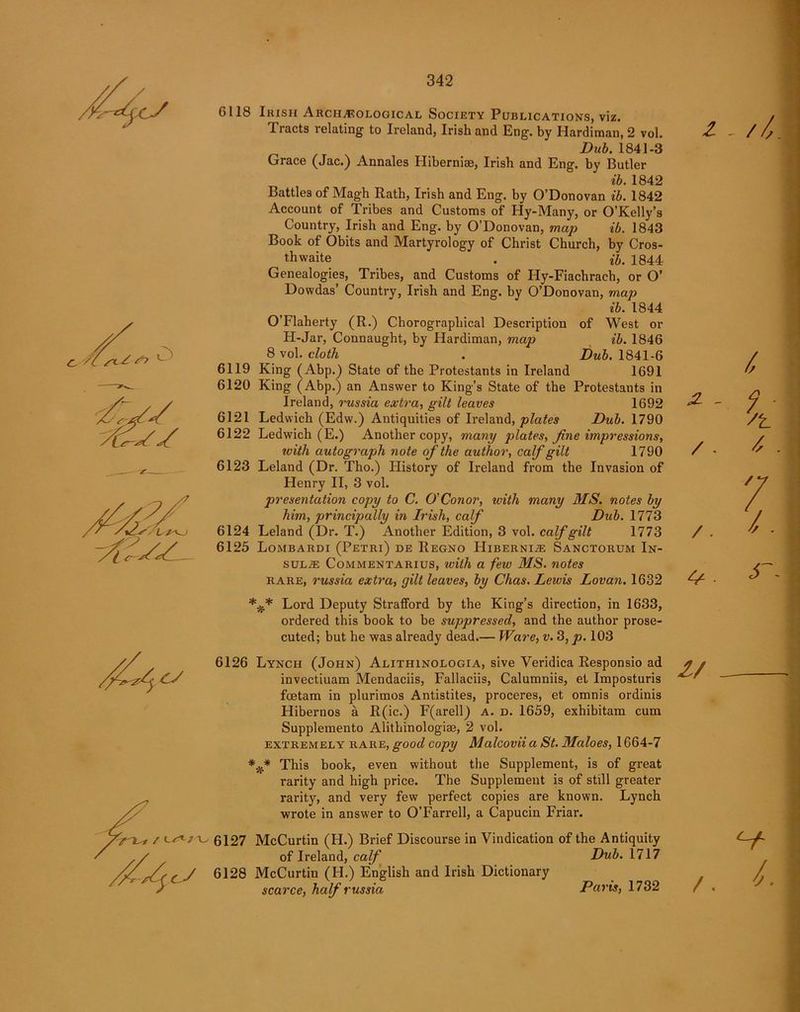 342
6118 Irish Archæological Society Publications, viz.
Tracts relating to Ireland, Irish and Eng. by Hardiman, 2 vol.
Dub. 1841-3
Grace (Jac.) Annales Hiberniæ, Irish and Eng. by Butler
ib. 1842
Battles of Magh Rath, Irish and Eng. by O'Donovan ib. 1842
Account of Tribes and Customs of Hy-Many, or O'Kelly's
Country, Irish and Eng. by O'Donovan, map ib. 1843
Book of Obits and Martyrology of Christ Church, by Cros-
thwaite . ib. 1844
Genealogies, Tribes, and Customs of Hy-Fiachrach, or O'
Dowdas' Country, Irish and Eng. by O'Donovan, map
ib. 1844
O'Flaherty (R.) Chorographical Description of West or
H-Jar, Connaught, by Hardiman, map ib. 1846
8 vol. cloth . Dub. 1841-6
6119 King (Abp.) State of the Protestants in Ireland 1691
6120 King (Abp.) an Answer to King's State of the Protestants in
Ireland, russia extra, gilt leaves 1692
6121 Ledwich (Edw.) Antiquities of Ireland, plates Dub. 1790
6122 Ledwich (E.) Another copy, many plates, fine impressions,
with autograph note of the author, calf gilt 1790
6123 Leland (Dr. Tho.) History of Ireland from the Invasion of
Henry II, 3 vol.
presentation copy to C. O'Conor, with many MS. notes by
him, principally in Irish, calf Dub. 1773
6124 Leland (Dr. T.) Another Edition, 3 vol. calf gilt 1773
6125 Lombardi (Petri) de Regno Hiberniæ Sanctorum In-
sulæ Commentarius, with a few MS. notes
rare, russia extra, gilt leaves, by Chas. Lewis Lovan. 1632
*** Lord Deputy Strafford by the King's direction, in 1633,
ordered this book to be suppressed, and the author prose-
cuted; but he was already dead.— Ware, v. 3, p. 103
6126 Lynch (John) Alithinologia, sive Veridica Responsio ad
invectiuam Mendaciis, Fallaciis, Calumniis, et Imposturis
fœtam in plurimos Antistites, proceres, et omnis ordinis
Hibernos à R(ic.) F(arell) a. d. 1659, exhibitam cum
Supplemento Alithinologiæ, 2 vol.
extremely rare, good copy Malcovii a St. Maloes, 1664-7
*** This book, even without the Supplement, is of great
rarity and high price. The Supplement is of still greater
rarity, and very few perfect copies are known. Lynch
wrote in answer to O'Farrell, a Capucin Friar.
6127 McCurtin (H.) Brief Discourse in Vindication of the Antiquity
of Ireland, calf Dub. 1717
6128 McCurtin (H.) English and Irish Dictionary
scarce, half russia Paris, 1732